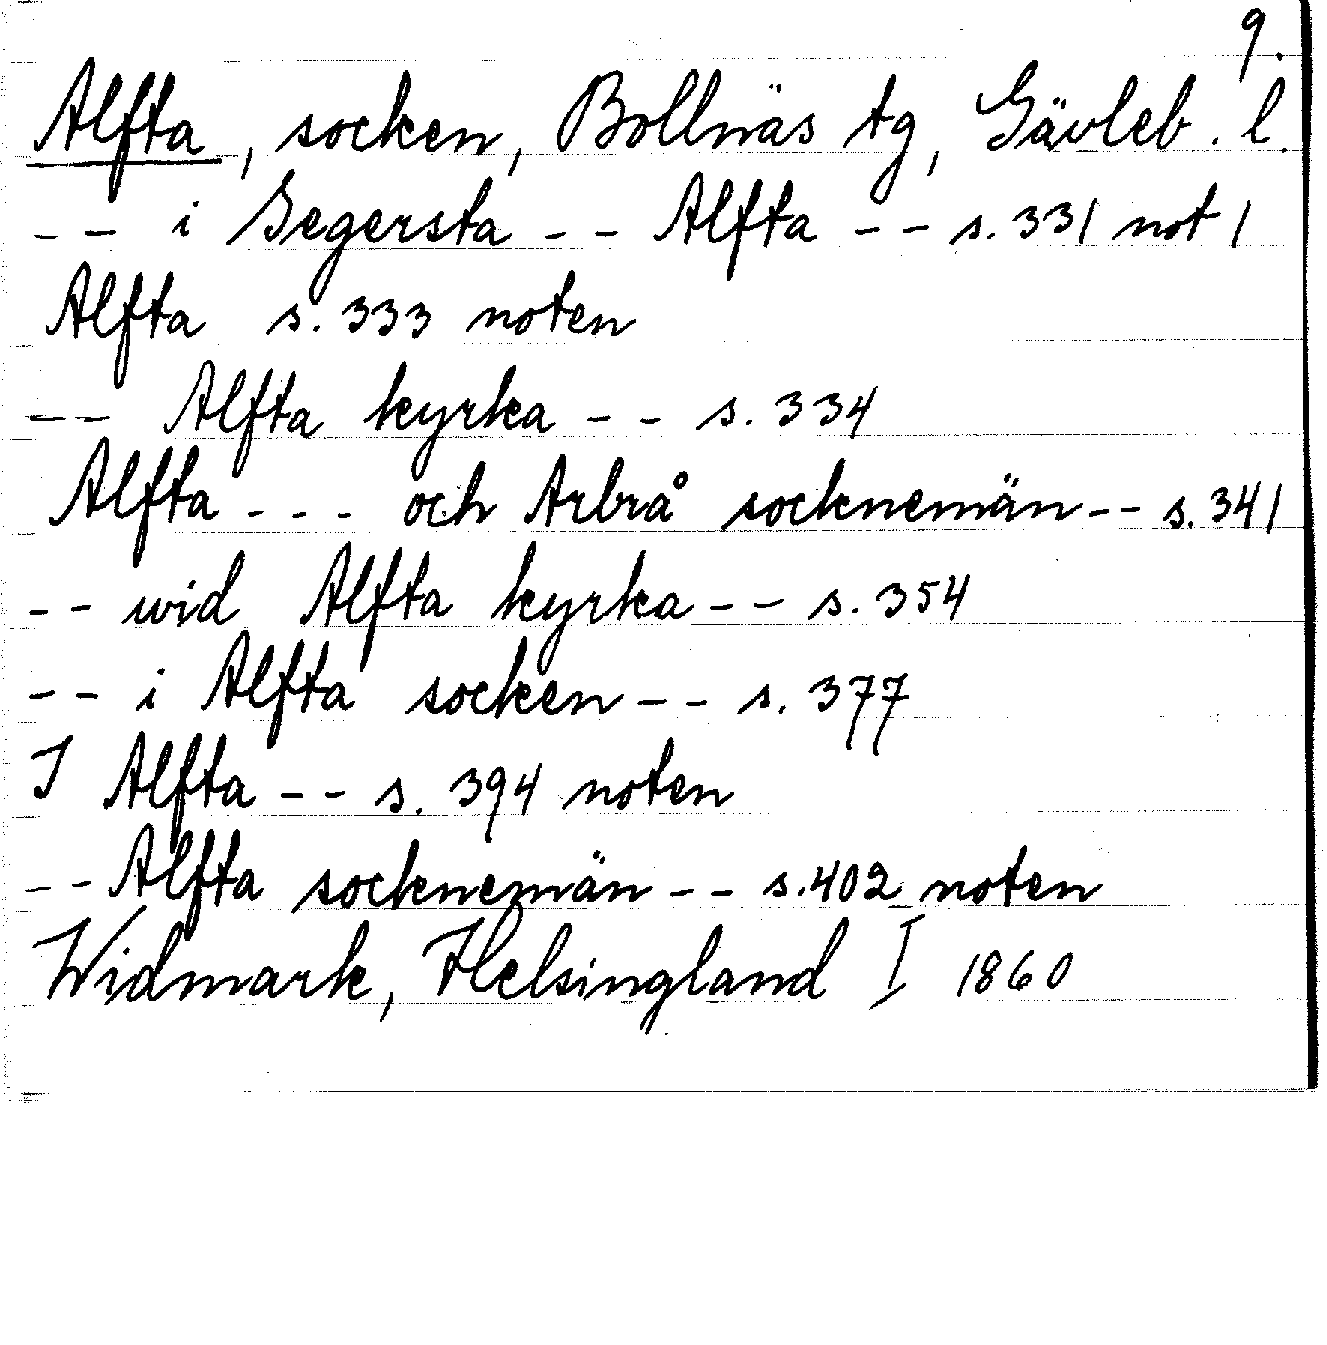 9.
Alfta, socken, Bollnäs tg, Gävleb. l.
-- i Segersta -- Alfta -- s. 331 not 1
Alfta s. 333 noten
-- Alfta kyrka -- s. 334
Alfta --- och Arbrå socknemän -- s. 341
-- wid Alfta kyrka -- s. 354
-- i Alfta socken -- s. 377
I Alfta -- s. 394 noten
-- Alfta socknemän -- s. 402 noten
Widmark, Helsingland I 1860